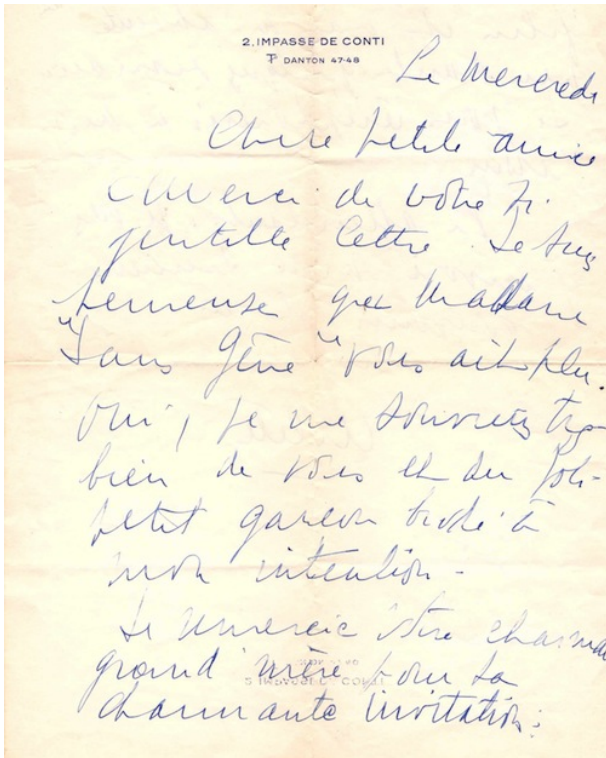 2, IMPASSE DE CONTI
DANTON 47-48
Le Mercredi
Chère petite amie
Merci de votre si
gentille lettre. Je suis
heureuse que Madame
"Sans Gêne" vous ait plu.
Oui, je me souviens très
bien de vous et du joli
petit garçon brodé à
mon intention -
Je remercie votre charmante
grand'mère pour sa
charmante invitation: